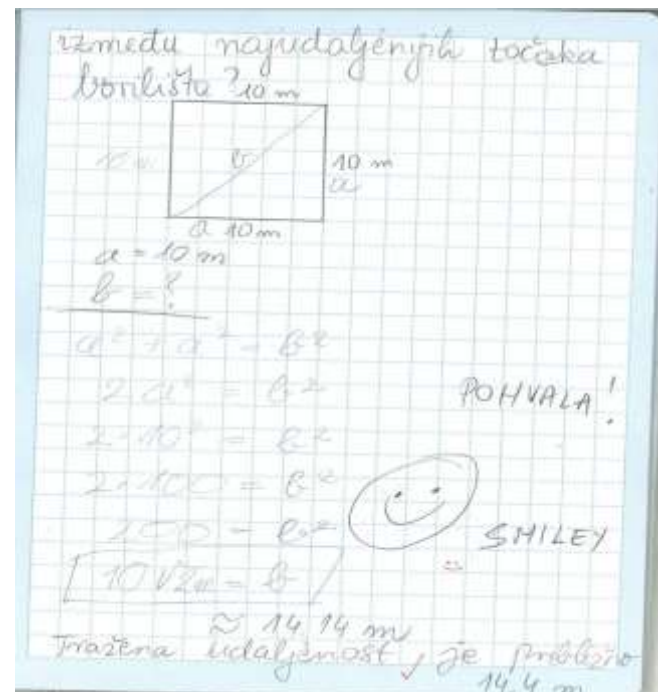 između najudaljenijih točaka
borilišta? 10 m
b
10 m
a
a 10 m
a = 10 m
b = ?
a² + a² = b²
2a² = b²
POHVALA!
2·10² = b²
2·100 = b²
100 = b²
SMILEY
10√2 = b
≈ 14,14 m
Tražena udaljenost je približno
14,4 m